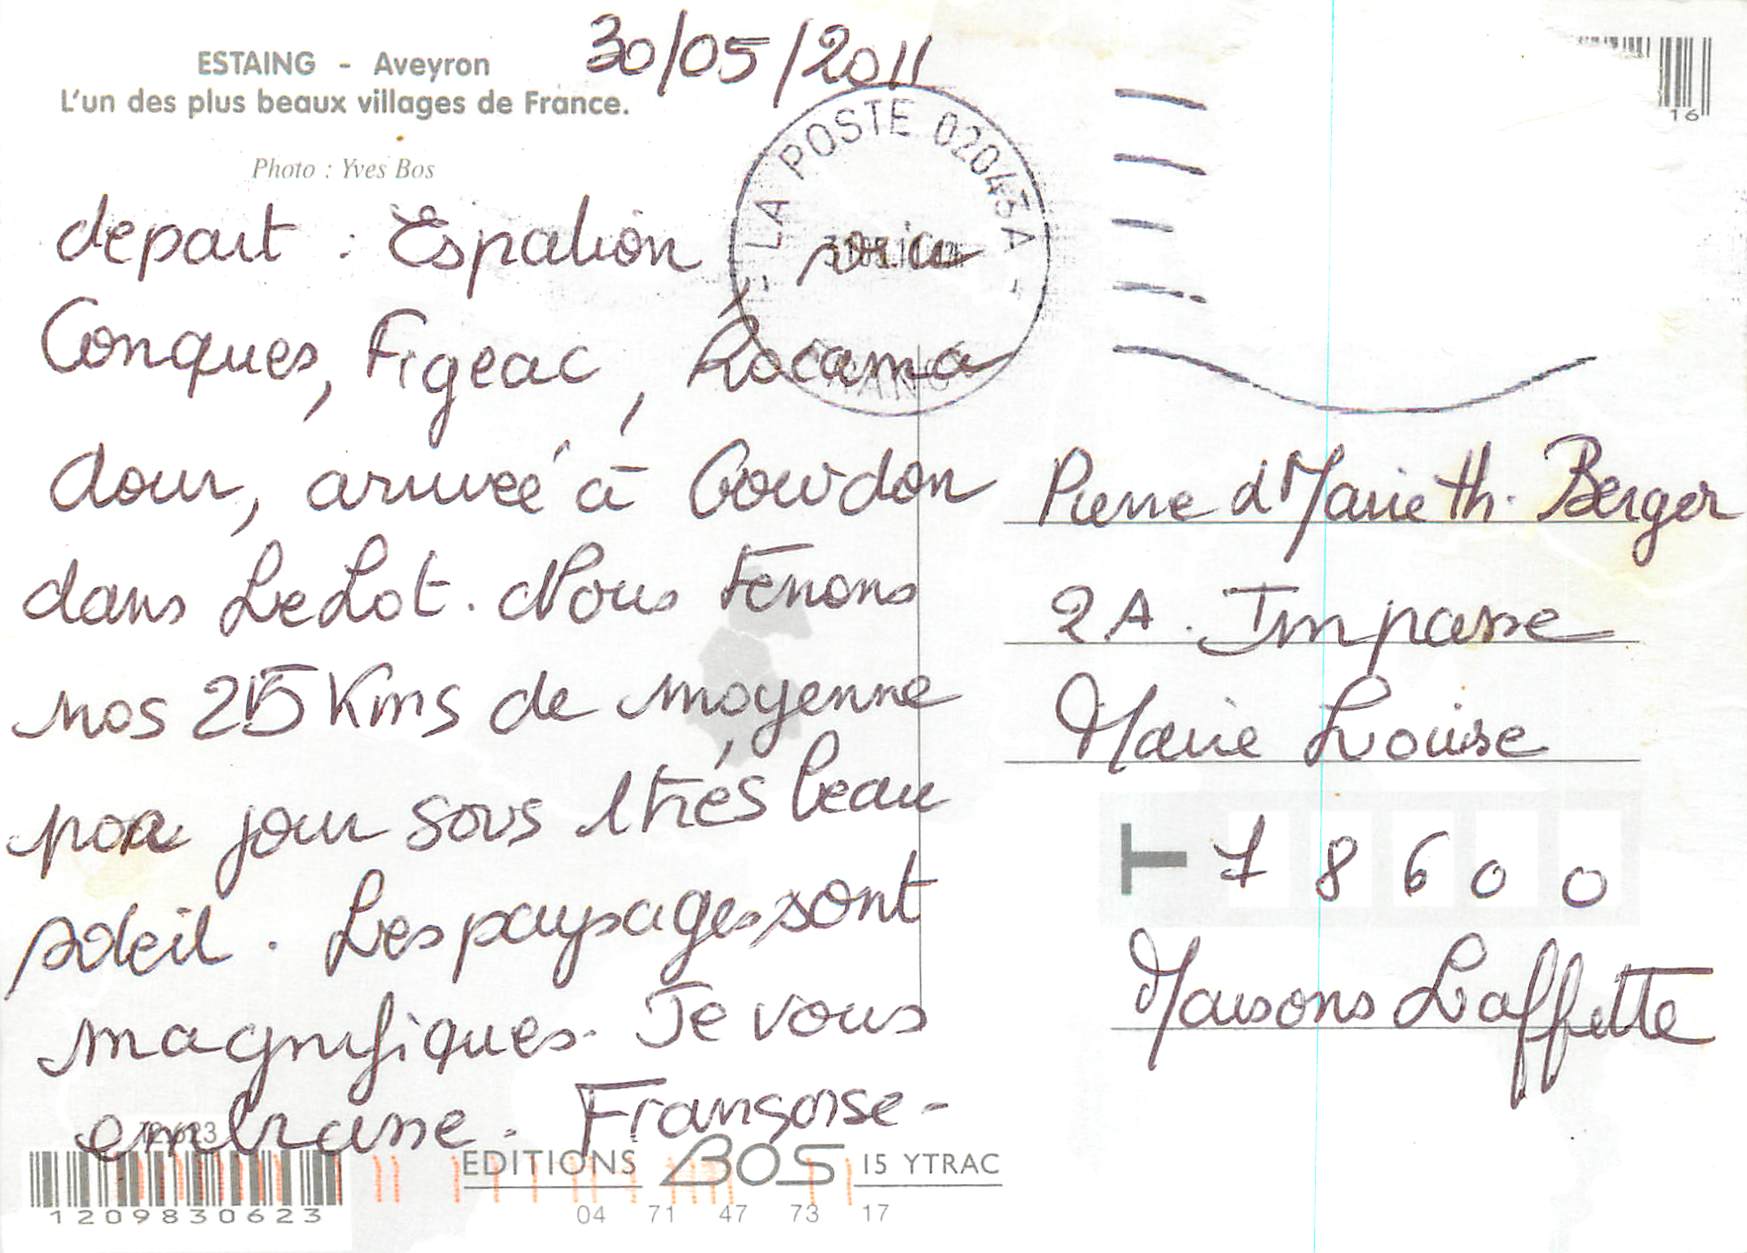 ESTAING - Aveyron
L'un des plus beaux villages de France.
Photo : Yves Bos
30/05/2011
LA POSTE 02045A
16
depart : Espalion, puis
Conques, Figeac, Rocama
dour, arrivée à Gourdon
dans Le Lot. Nous tenons
nos 25 Kms de moyenne
par jour sous 1 très beau
soleil. Les paysages sont
magnifiques. Je vous
embrasse. Françoise-
Pierre et Marie th. Berger
2A. Impasse
Marie Louise
T 78600
Maisons Laffitte
12.623
1209830623
EDITIONS BOS 15 YTRAC
04 71 47 73 17